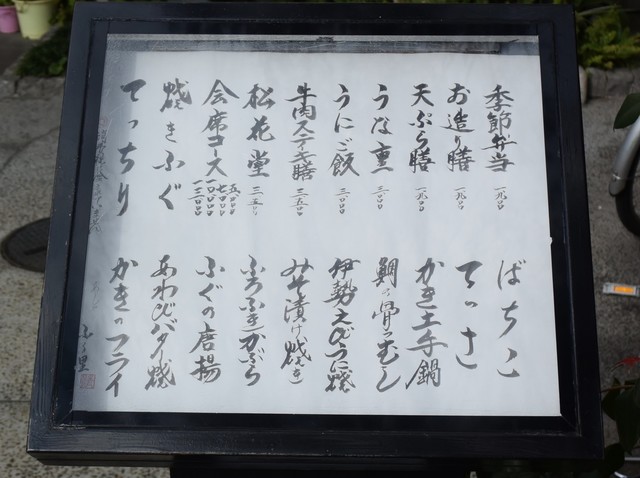 季節弁当 一九〇〇
お造り膳 一九〇〇
天ぷら膳 一九〇〇
うな重 三〇〇〇
うにご飯 三〇〇〇
牛肉ステーキ膳 三五〇〇
松花堂 三五〇〇
会席コース 五〇〇〇 七〇〇〇 一〇〇〇〇 一三〇〇〇
焼きふぐ
てっちり
ばちこ
てっさ
かき土手鍋
鯛の骨むし
伊勢えびうに焼
みそ漬け焼き
ふろふきかぶら
ふぐの唐揚
あわびバター焼
かきのフライ